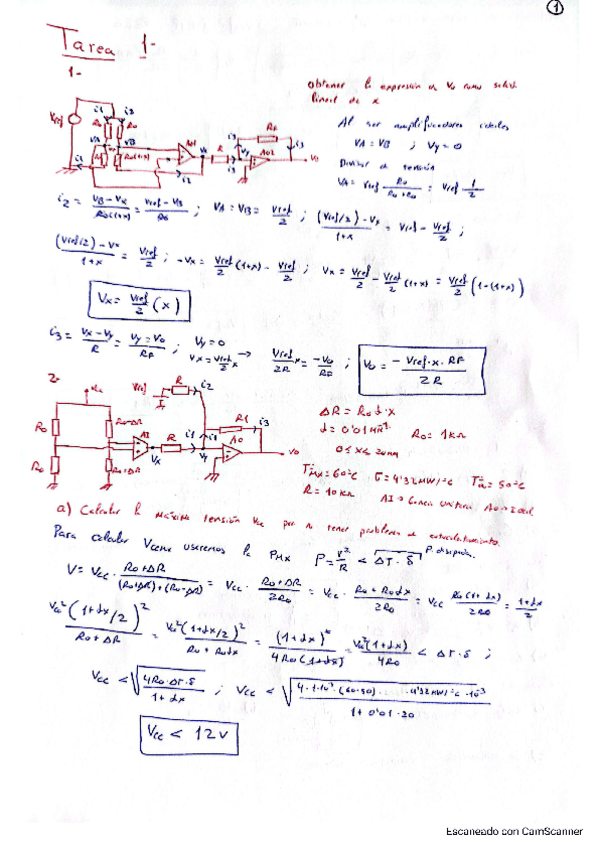 1
Tarea 1-
1-
obtener la expresión de Vo como salida
lineal de x
Al ser amplificadores ideales
VA = VB ; Vy = 0
Divisor de tensión
VA = Vref Ro/(Ro+Ro) = Vref 1/2
Vref i1 i2 Ro Ro VA VB Ro(1+x) i2 AO1 Vx R i3 Vy RF i3 AO2 Vo
i2 = (VB - Vx)/(Ro(1+x)) = (Vref - VB)/Ro ; VA = VB = Vref/2 ; ((Vref/2) - Vx)/(1+x) = Vref - Vref/2 ;
((Vref/2) - Vx)/(1+x) = Vref/2 ; -Vx = Vref/2 (1+x) - Vref/2 ; Vx = Vref/2 - Vref/2 (1+x) = Vref/2 (1-(1+x))
Vx = Vref/2 (x)
i3 = (Vx - Vy)/R = (Vy = Vo)/RF ; Vy = 0 Vx = Vref/2 x → Vref/2R x = -Vo/RF ; Vo = (-Vref·x·RF)/2R
2-
Vref R i2
Ro Ro-ΔR Ro Ro+ΔR AI Vx R i1 Vy R1 i3 AO Vo
ΔR = Ro d·x
d = 0'01 Ro = 1kΩ
0 ≤ x ≤ 20
Tmx = 60ºC δ = 4'32MW/ºC Ta = 50ºC
R = 10kΩ AI → Ganancia unitaria AO → ideal
a) Calcular la máxima tensión Vcc por no tener problemas de autocalentamiento.
Para calcular Vccmx usaremos la PMX P = V²/R < ΔT·δ P. disipada.
V = Vcc · (Ro+ΔR)/((Ro+ΔR)+(Ro-ΔR)) = Vcc · (Ro+ΔR)/2Ro = Vcc · (Ro+Rodx)/2Ro = Vcc Ro(1+dx)/2Ro = (1+dx)/2
Vcc²(1+dx/2)²/(Ro+ΔR) = Vcc²(1+dx/2)²/(Ro+Rodx) = (1+dx)²/(4Ro(1+dx)) = Vcc²(1+dx)/4Ro < ΔT·δ ;
Vcc < √(4Ro·ΔT·δ/(1+dx)) ; Vcc < √(4·1·10³·(60-50)·4'32MW/ºC·10⁻³/(1+0'01·20))
Vcc < 12v
Escaneado con CamScanner